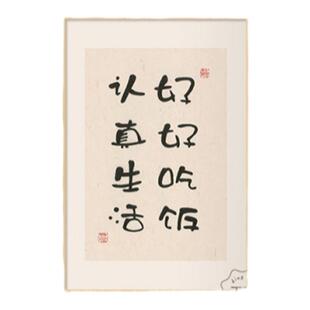 好好吃饭
认真生活